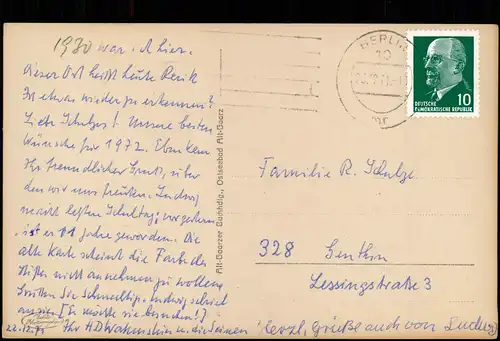 1930 war. A hier.
Dieser Ort heißt heute Rerik
Ist etwas wieder zu erkennen?
Liebe Schulzes! Unsere besten
Wünsche für 1972. Eben kam
Ihr freundlicher Gruß, über
den wir uns freuten. Ludwig
macht letzten Schultag; vorgestern
ist er 11 Jahre geworden. Die
alte Karte scheint die Farbe des
Stiftes nicht annehmen zu wollen
Ludwig schreibt
[Er möchte sie besuchen!]
22.12.71 Ihr HDWakenstein u. die Seinen
Herzl. Grüße auch von Ludwig
Alt-Gaarzer Buchhdlg., Ostseebad Alt-Gaarz
BERLIN
DEUTSCHE
DEMOKRATISCHE REPUBLIK
10
Familie R. Schulze
328 Genthin
Lessingstraße 3